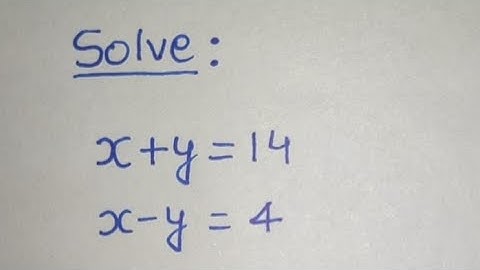 Solve:
x+y=14
x-y=4